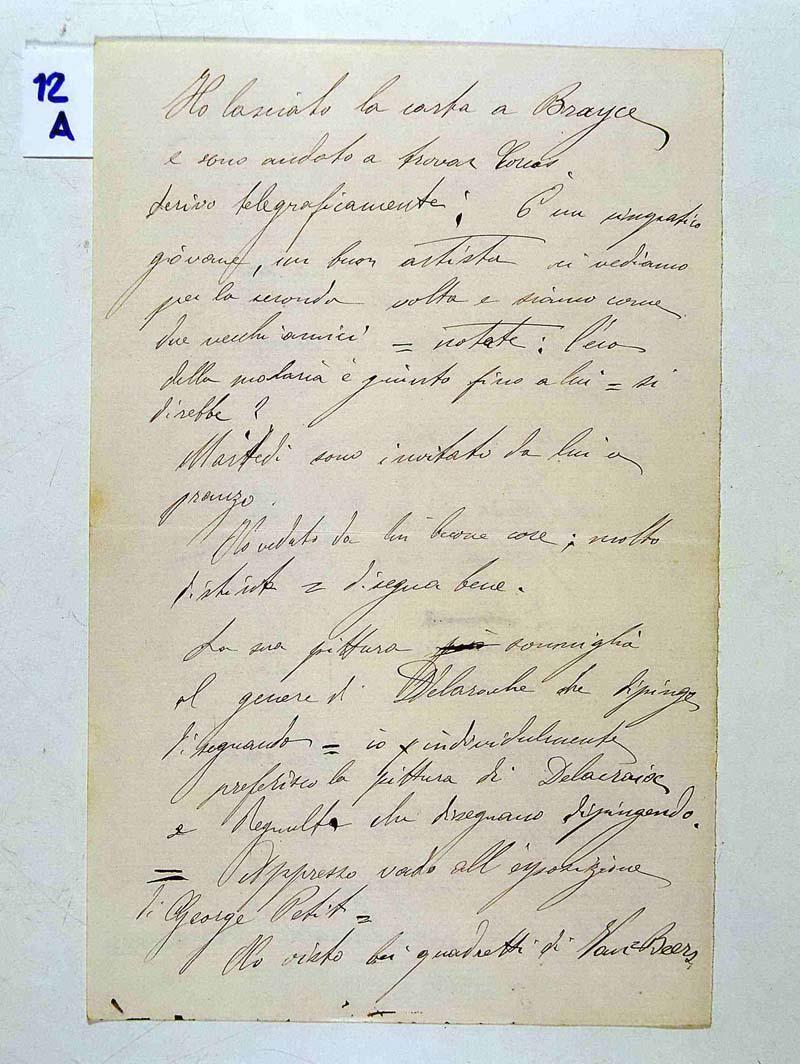 12
A
Ho lasciato la carta a Brayce
e sono andato a trovar
scrivo telegraficamente; È un simpatico
giovane, un buon artista ci vediamo
per la seconda volta e siamo come
due vecchi amici = notate: l'eco
della malaria è giunto fino a lui = si
direbbe?
Martedì sono invitato da lui a
pranzo.
Ho veduto da lui buone cose; molto
distinte = disegna bene.
La sua pittura somiglia
al genere di Delaroche che dipinge
disegnando = io individulmente
preferisco la pittura di Delacroix
e Regnault che disegnano dipingendo.
= Appresso vado all'esposizione
di George Petit =
Ho visto bei quadretti di Van Beers,